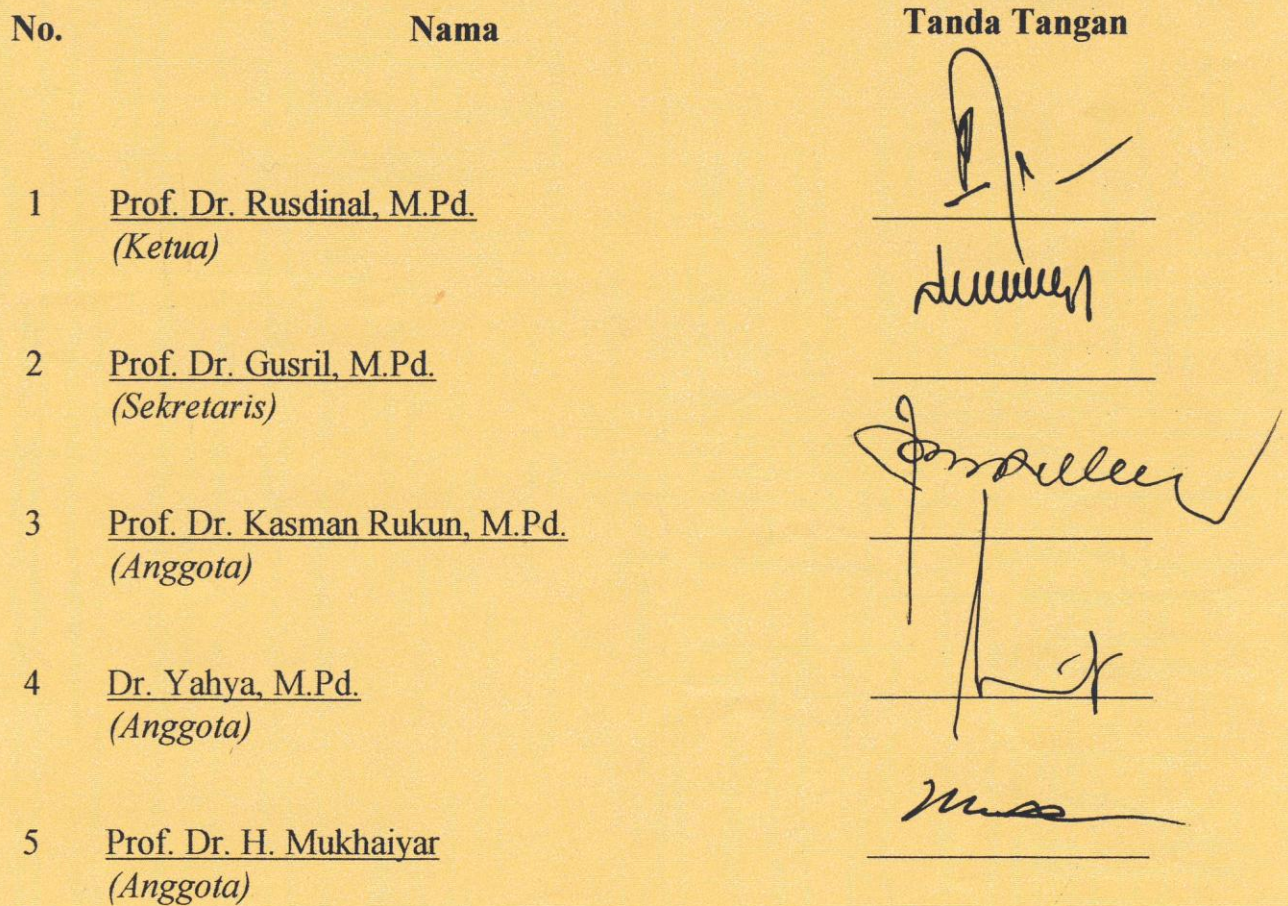 No. Nama Tanda Tangan
1 Prof. Dr. Rusdinal, M.Pd.
(Ketua)
2 Prof. Dr. Gusril, M.Pd.
(Sekretaris)
3 Prof. Dr. Kasman Rukun, M.Pd.
(Anggota)
4 Dr. Yahya, M.Pd.
(Anggota)
5 Prof. Dr. H. Mukhaiyar
(Anggota)